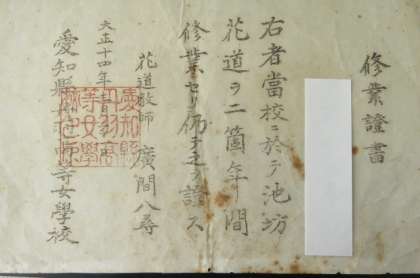 修業證書
右者當校ニ於テ池坊
花道ヲ二箇年ノ間
修業セリ仍テ之ヲ證ス
花道教師 廣間八尋
大正十四年
愛知縣 高等女學校